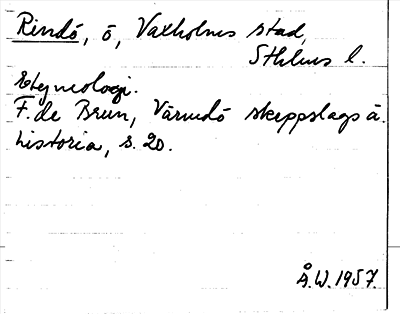 Rindö, ö, Vaxholms stad,
Sthlms l.
Etymologi.
F. de Brun, Värmdö skeppslags ä.
historia, s. 20.
Å.W. 1957.